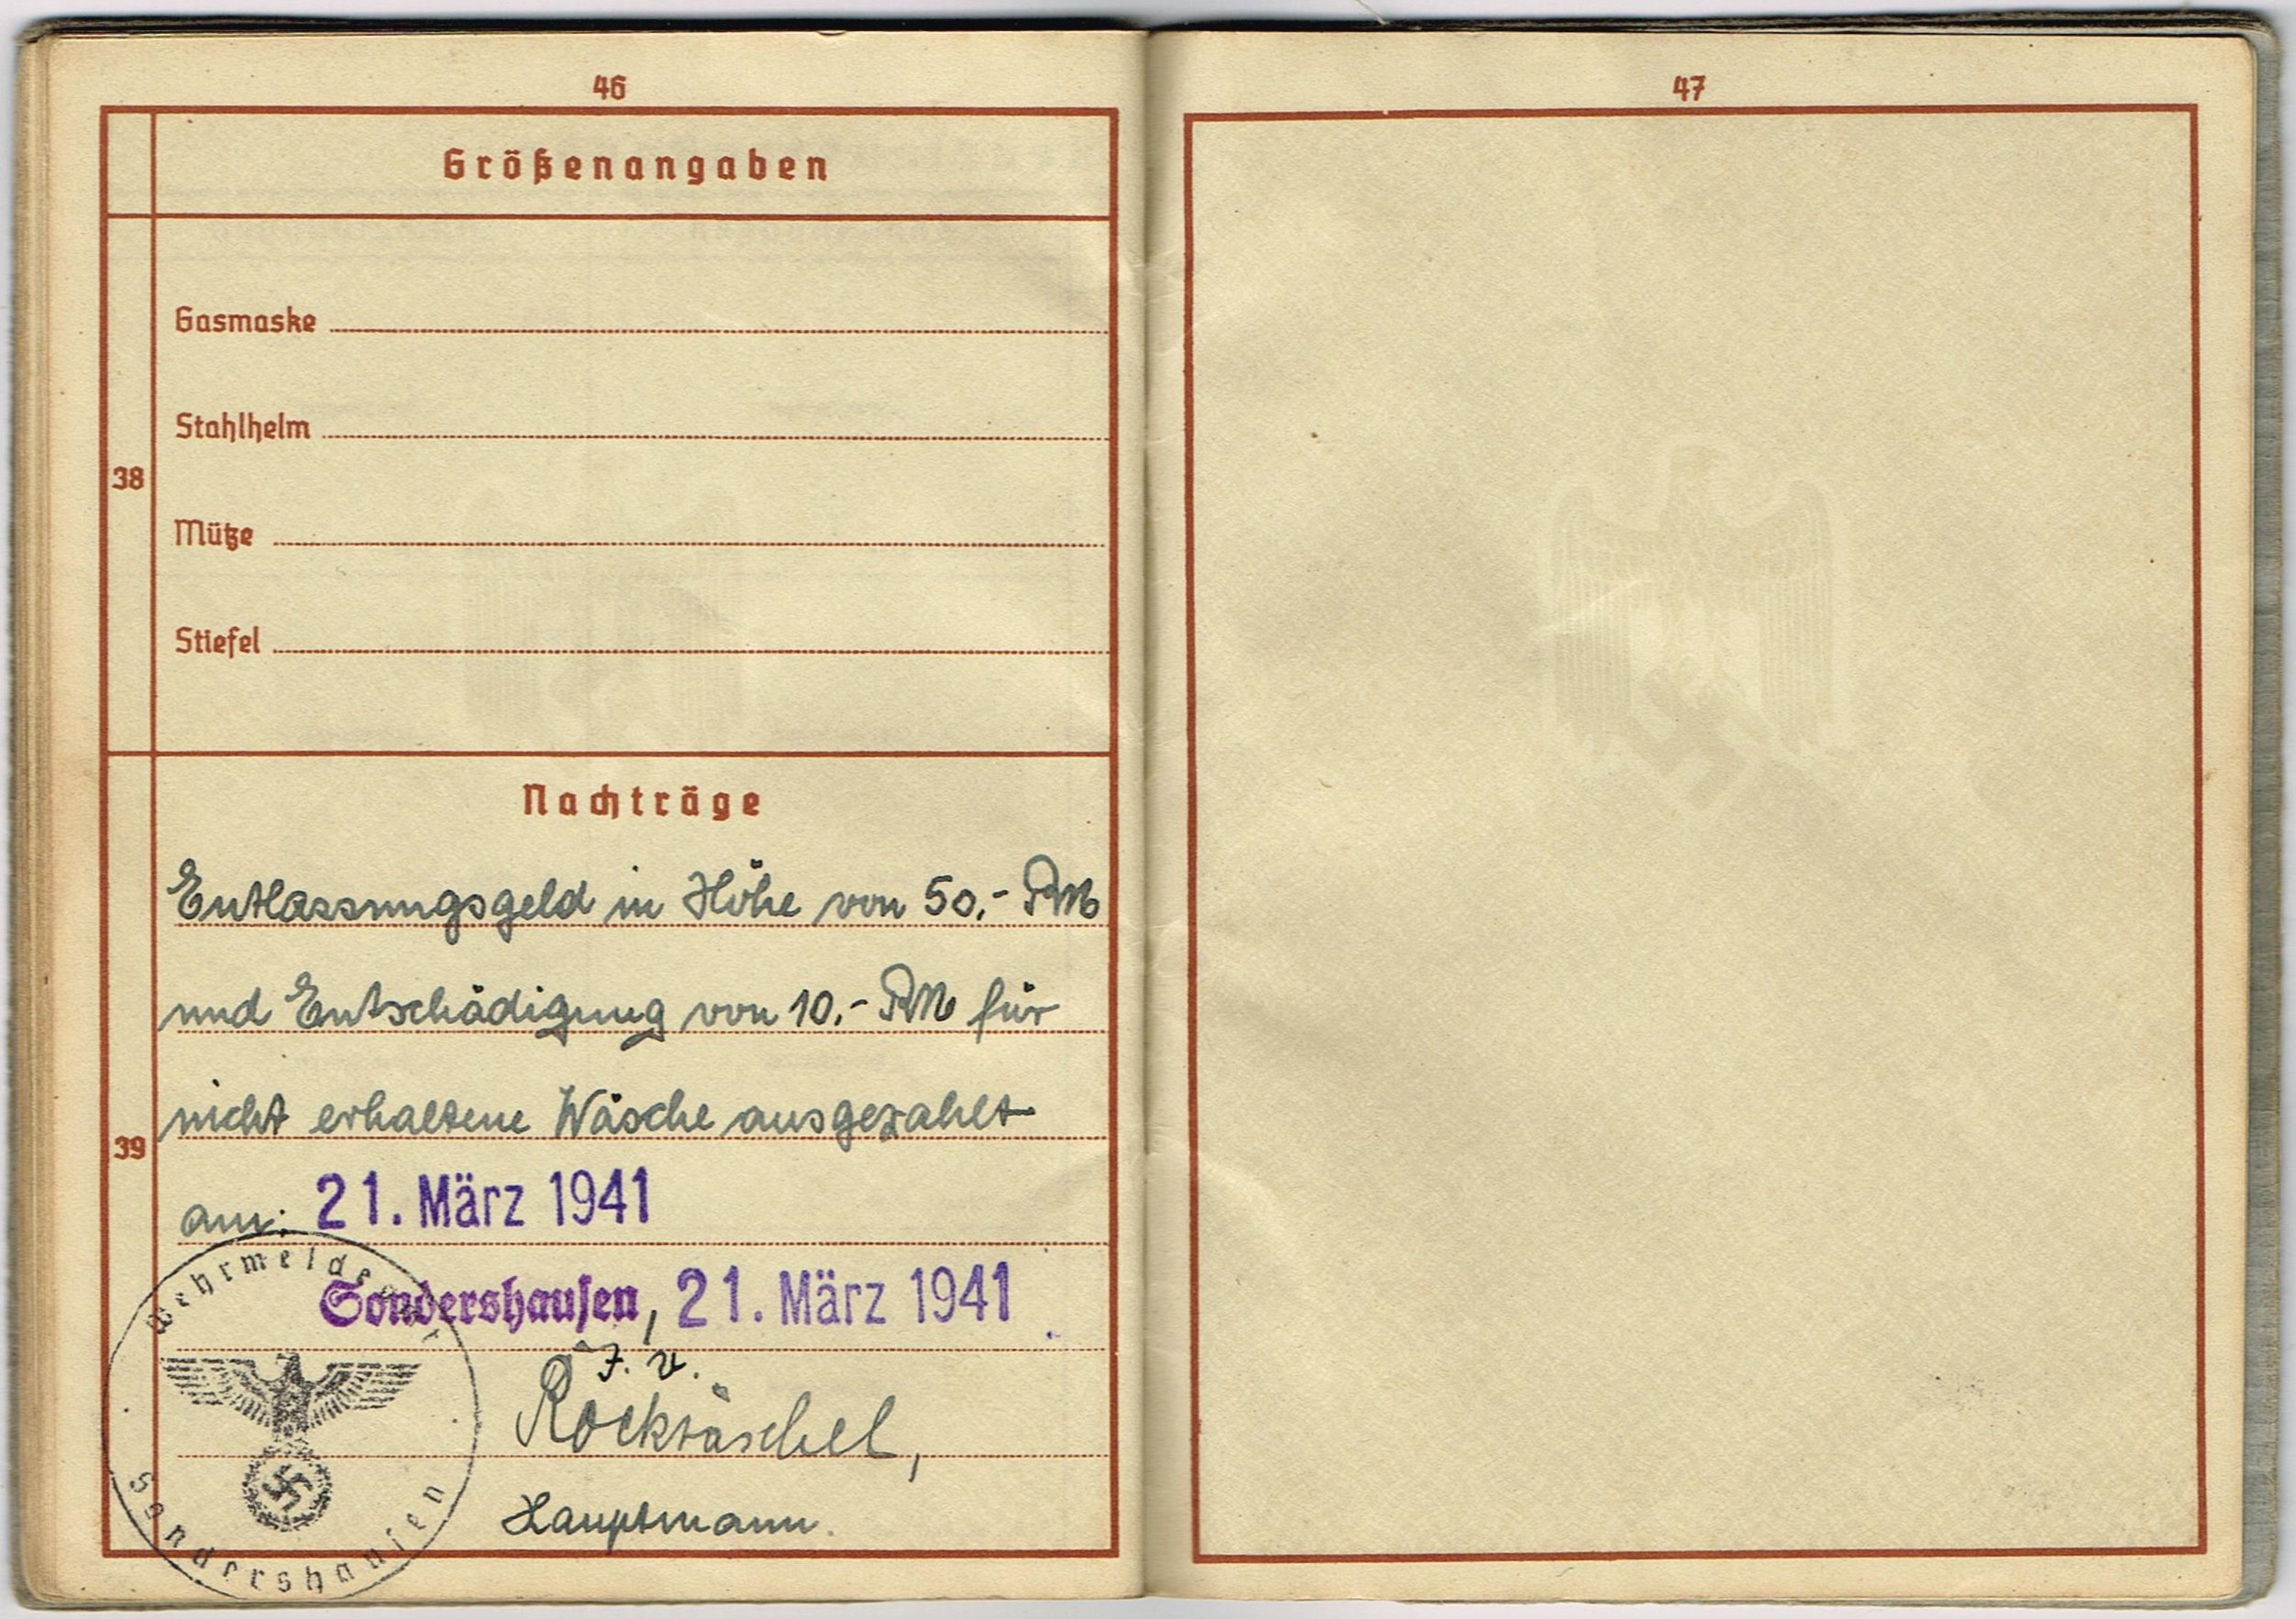 46
Größenangaben
Gasmaske
Stahlhelm
38
Mütze
Stiefel
Nachträge
Entlassungsgeld in Höhe von 50,- RM
und Entschädigung von 10,- RM für
nicht erhaltene Wäsche ausgezahlt
39
am: 21. März 1941
Sondershausen, 21. März 1941
J. V.
Rocktäschel,
Hauptmann.
Wehrmeldeamt
Sondershausen
47